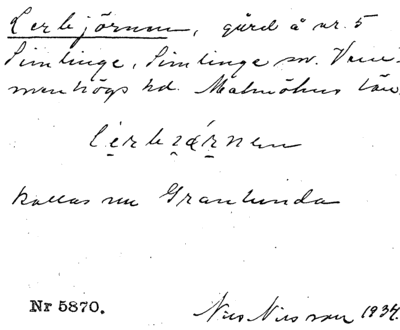 Lerbjörnen, gård å nr. 5
Simlinge, Simlinge sn. Vem-
menhögs hd. Malmöhus län.
kallas nu Granlunda
Nr 5870.
Nils Nilsson 1934.